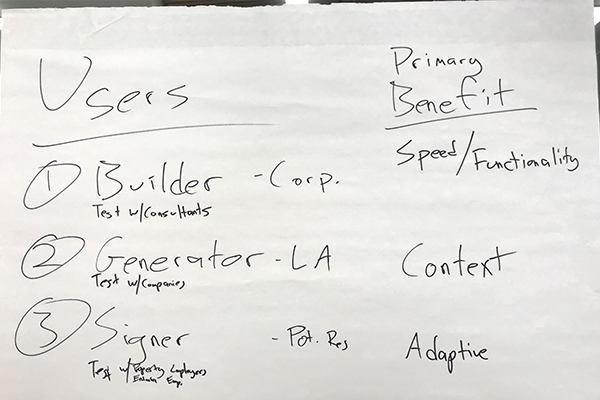 Users
Primary
Benefit
Speed/Functionality
① Builder - Corp.
Test w/Consultants
② Generator - LA Context
Test w/Companies
③ Signer - Pot. Res Adaptive
Test w/ Property Employees
Emp.